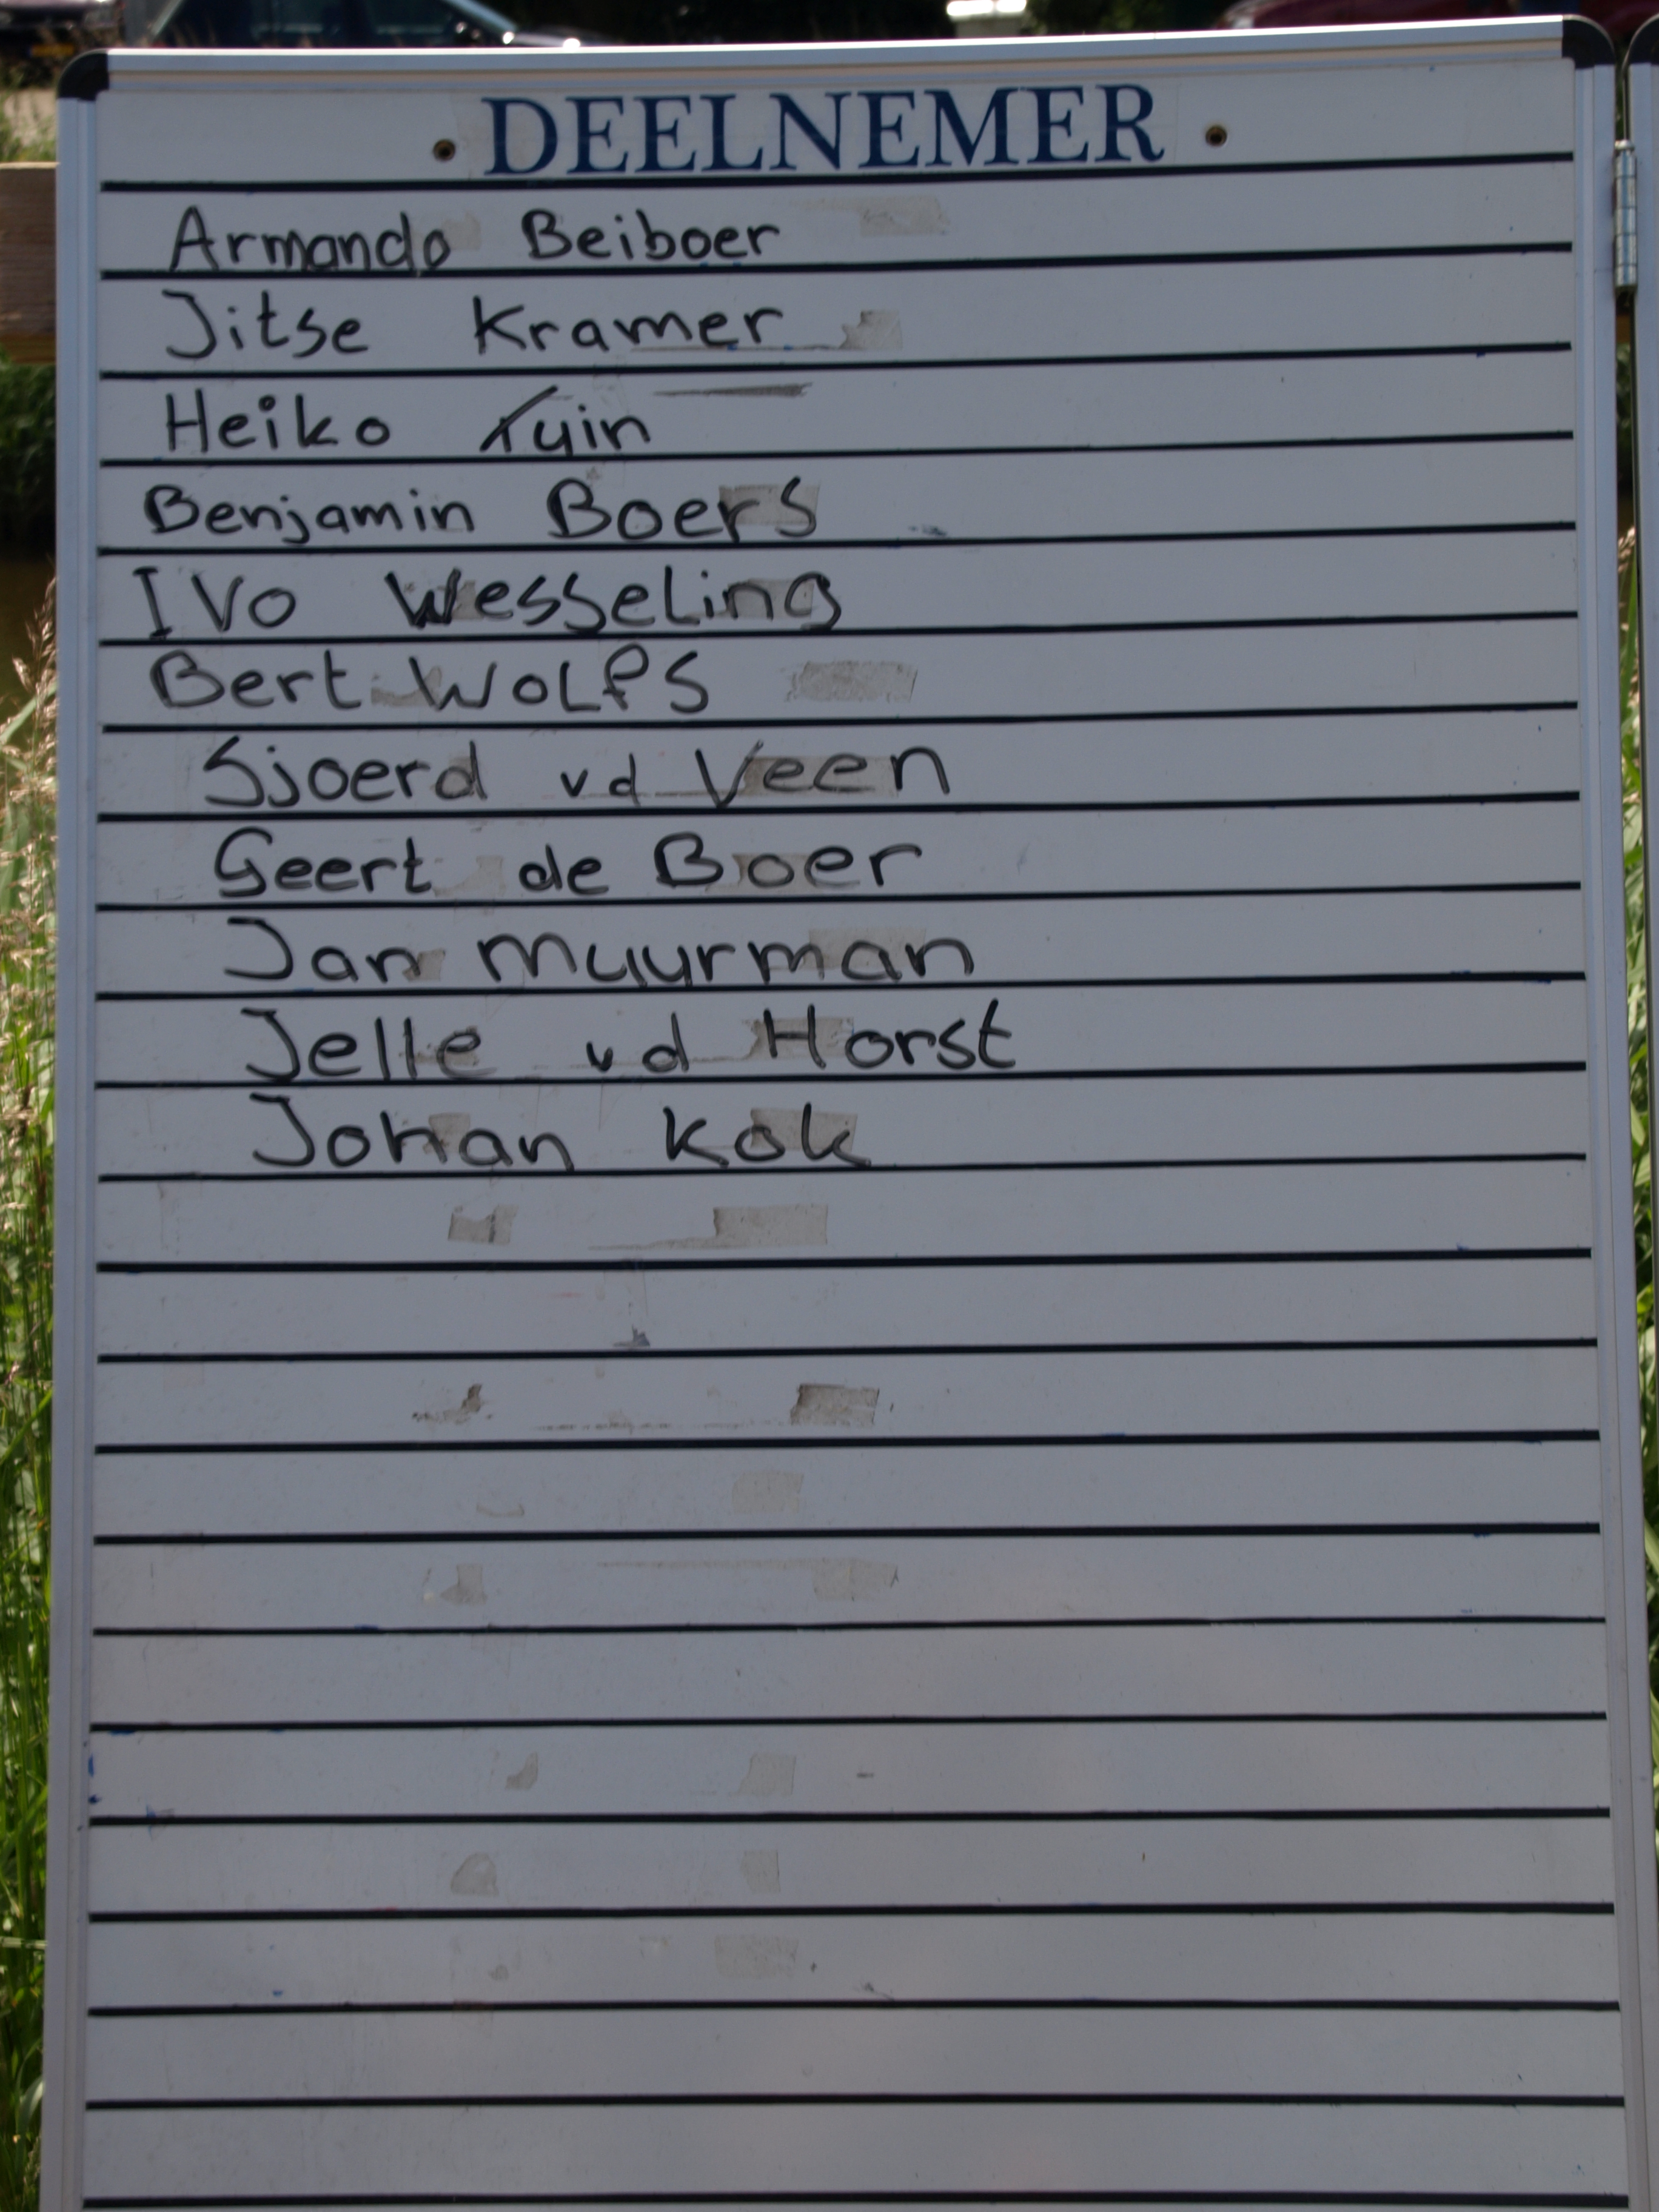 DEELNEMER
Armando Beiboer
Jitse Kramer
Heiko Tuin
Benjamin Boers
Ivo Wesseling
Bert Wolfs
Sjoerd vd Veen
Geert de Boer
Jan Muurman
Jelle vd Horst
Johan Kok